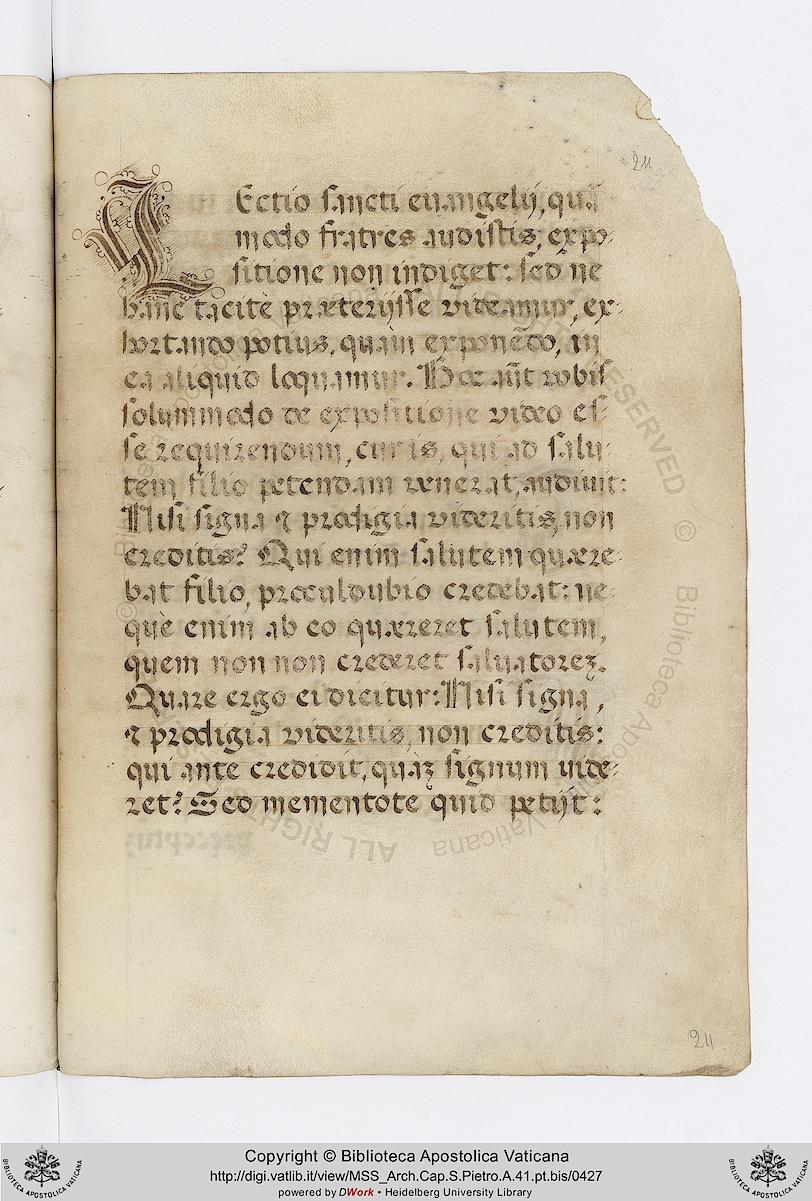 211
LEctio sancti euangelij, quā
modo fratres audistis, expo-
sitione non indiget: sed ne
hanc tacitè præterijsse videamur, ex-
hortando potius, quàm exponēdo, in
ea aliquid loquamur. Hoc aūt vobis
solummodo de expositione video es-
se requirendum, cur is, qui ad salu-
tem filio petendam venerat, audiuit:
Nisi signa & prodigia videritis, non
creditis? Qui enim salutem quære-
bat filio, proculdubio credebat: ne-
què enim ab eo quæreret salutem,
quem non non crederet saluatorez.
Quare ergo ei dicitur: Nisi signa,
& prodigia videritis, non creditis:
qui ante credidit, quaz signum vide-
ret? Sed mementote quid petijt:
211
© Biblioteca Apostolica Vaticana
ALL RIGHTS RESERVED
Copyright © Biblioteca Apostolica Vaticana
http://digi.vatlib.it/view/MSS_Arch.Cap.S.Pietro.A.41.pt.bis/0427
powered by DWork • Heidelberg University Library